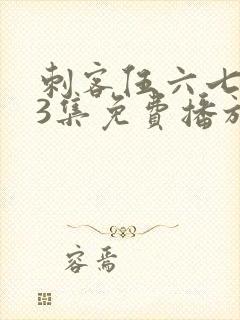 刺客伍六七
3集免费播放
容焉